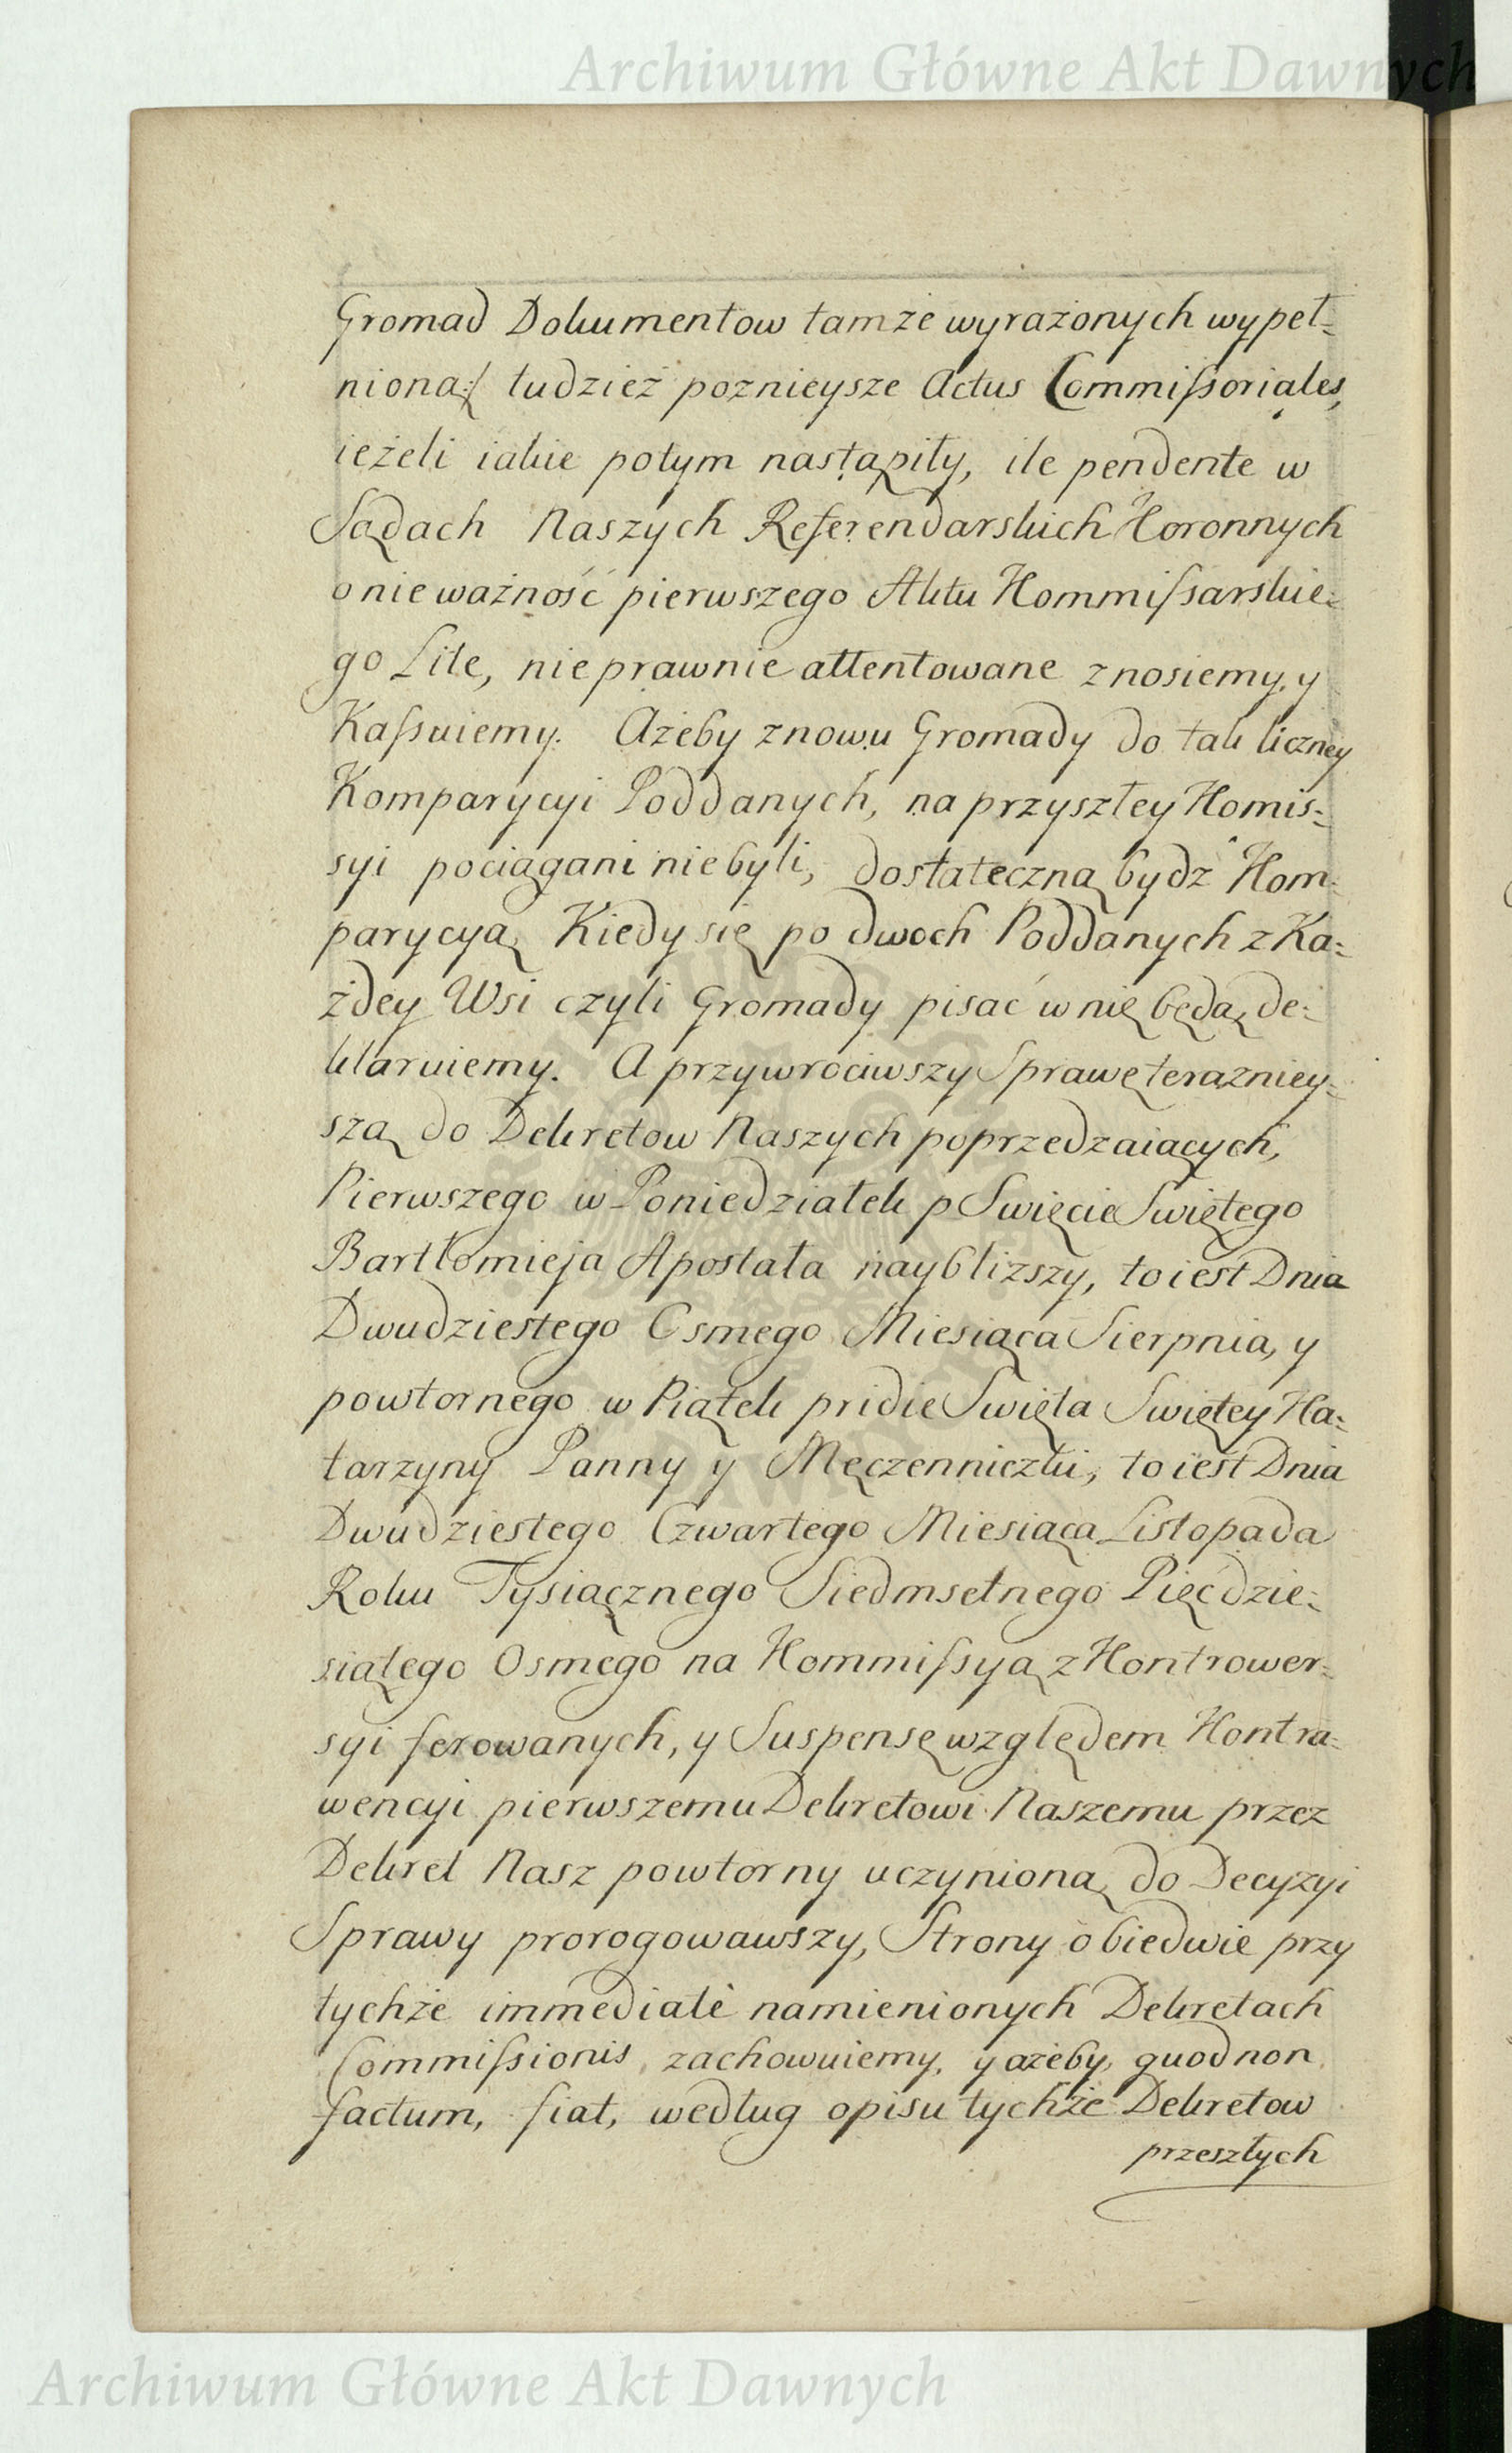 Archiwum Główne Akt Dawnych
Gromad Dokumentow tamże wyrażonych wypeł=
nioną:/ tudzież poznieysze Actus Commiſsoriales,
ieżeli iakie potym nastąpiły, ile pendente w
Sądach Naszych Referendarskich Koronnych
o nieważność pierwszego Aktu Kommiſsarskie=
go Lite, nieprawnie attentowane znosiemy, y
Kaſsuiemy. Ażeby znowu Gromady do tak liczney
Komparycyi Poddanych, na przyszłey Komis=
syi pociągani niebyli, dostateczną bydź Kom=
parycyą Kiedy się po dwoch Poddanych z Ka=
żdey Wsi czyli Gromady pisać w nię będą, de=
klaruiemy. A przywrociwszy Sprawę terazniey=
szą do Dekretow Naszych poprzedzaiących,
Pierwszego w Poniedziałek p Swięcie Swiętego
Bartłomieja Apostała nayblizszy, to iest Dnia
Dwudziestego Osmego Miesiąca Sierpnia, y
powtornego w Piątek pridie Swięta Swiętey Ka=
tarzyny Panny y Męczenniczki, to iest Dnia
Dwudziestego Czwartego Miesiąca Listopada
Roku Tysiącznego Siedmsetnego Pięćdzie=
siątego Osmego na Kommiſsyą z Kontrower=
syi ferowanych, y Suspensę względem Kontra=
wencyi pierwszemu Dekretowi Naszemu przez
Dekret Nasz powtorny uczynioną do Decyzyi
Sprawy prorogowawszy, Strony obiedwie przy
tychże immediatè namienionych Dekretach
Commiſsionis zachowuiemy, y ażeby quod non
factum, fiat, według opisu tychże Dekretow
przeszłych
Archiwum Główne Akt Dawnych